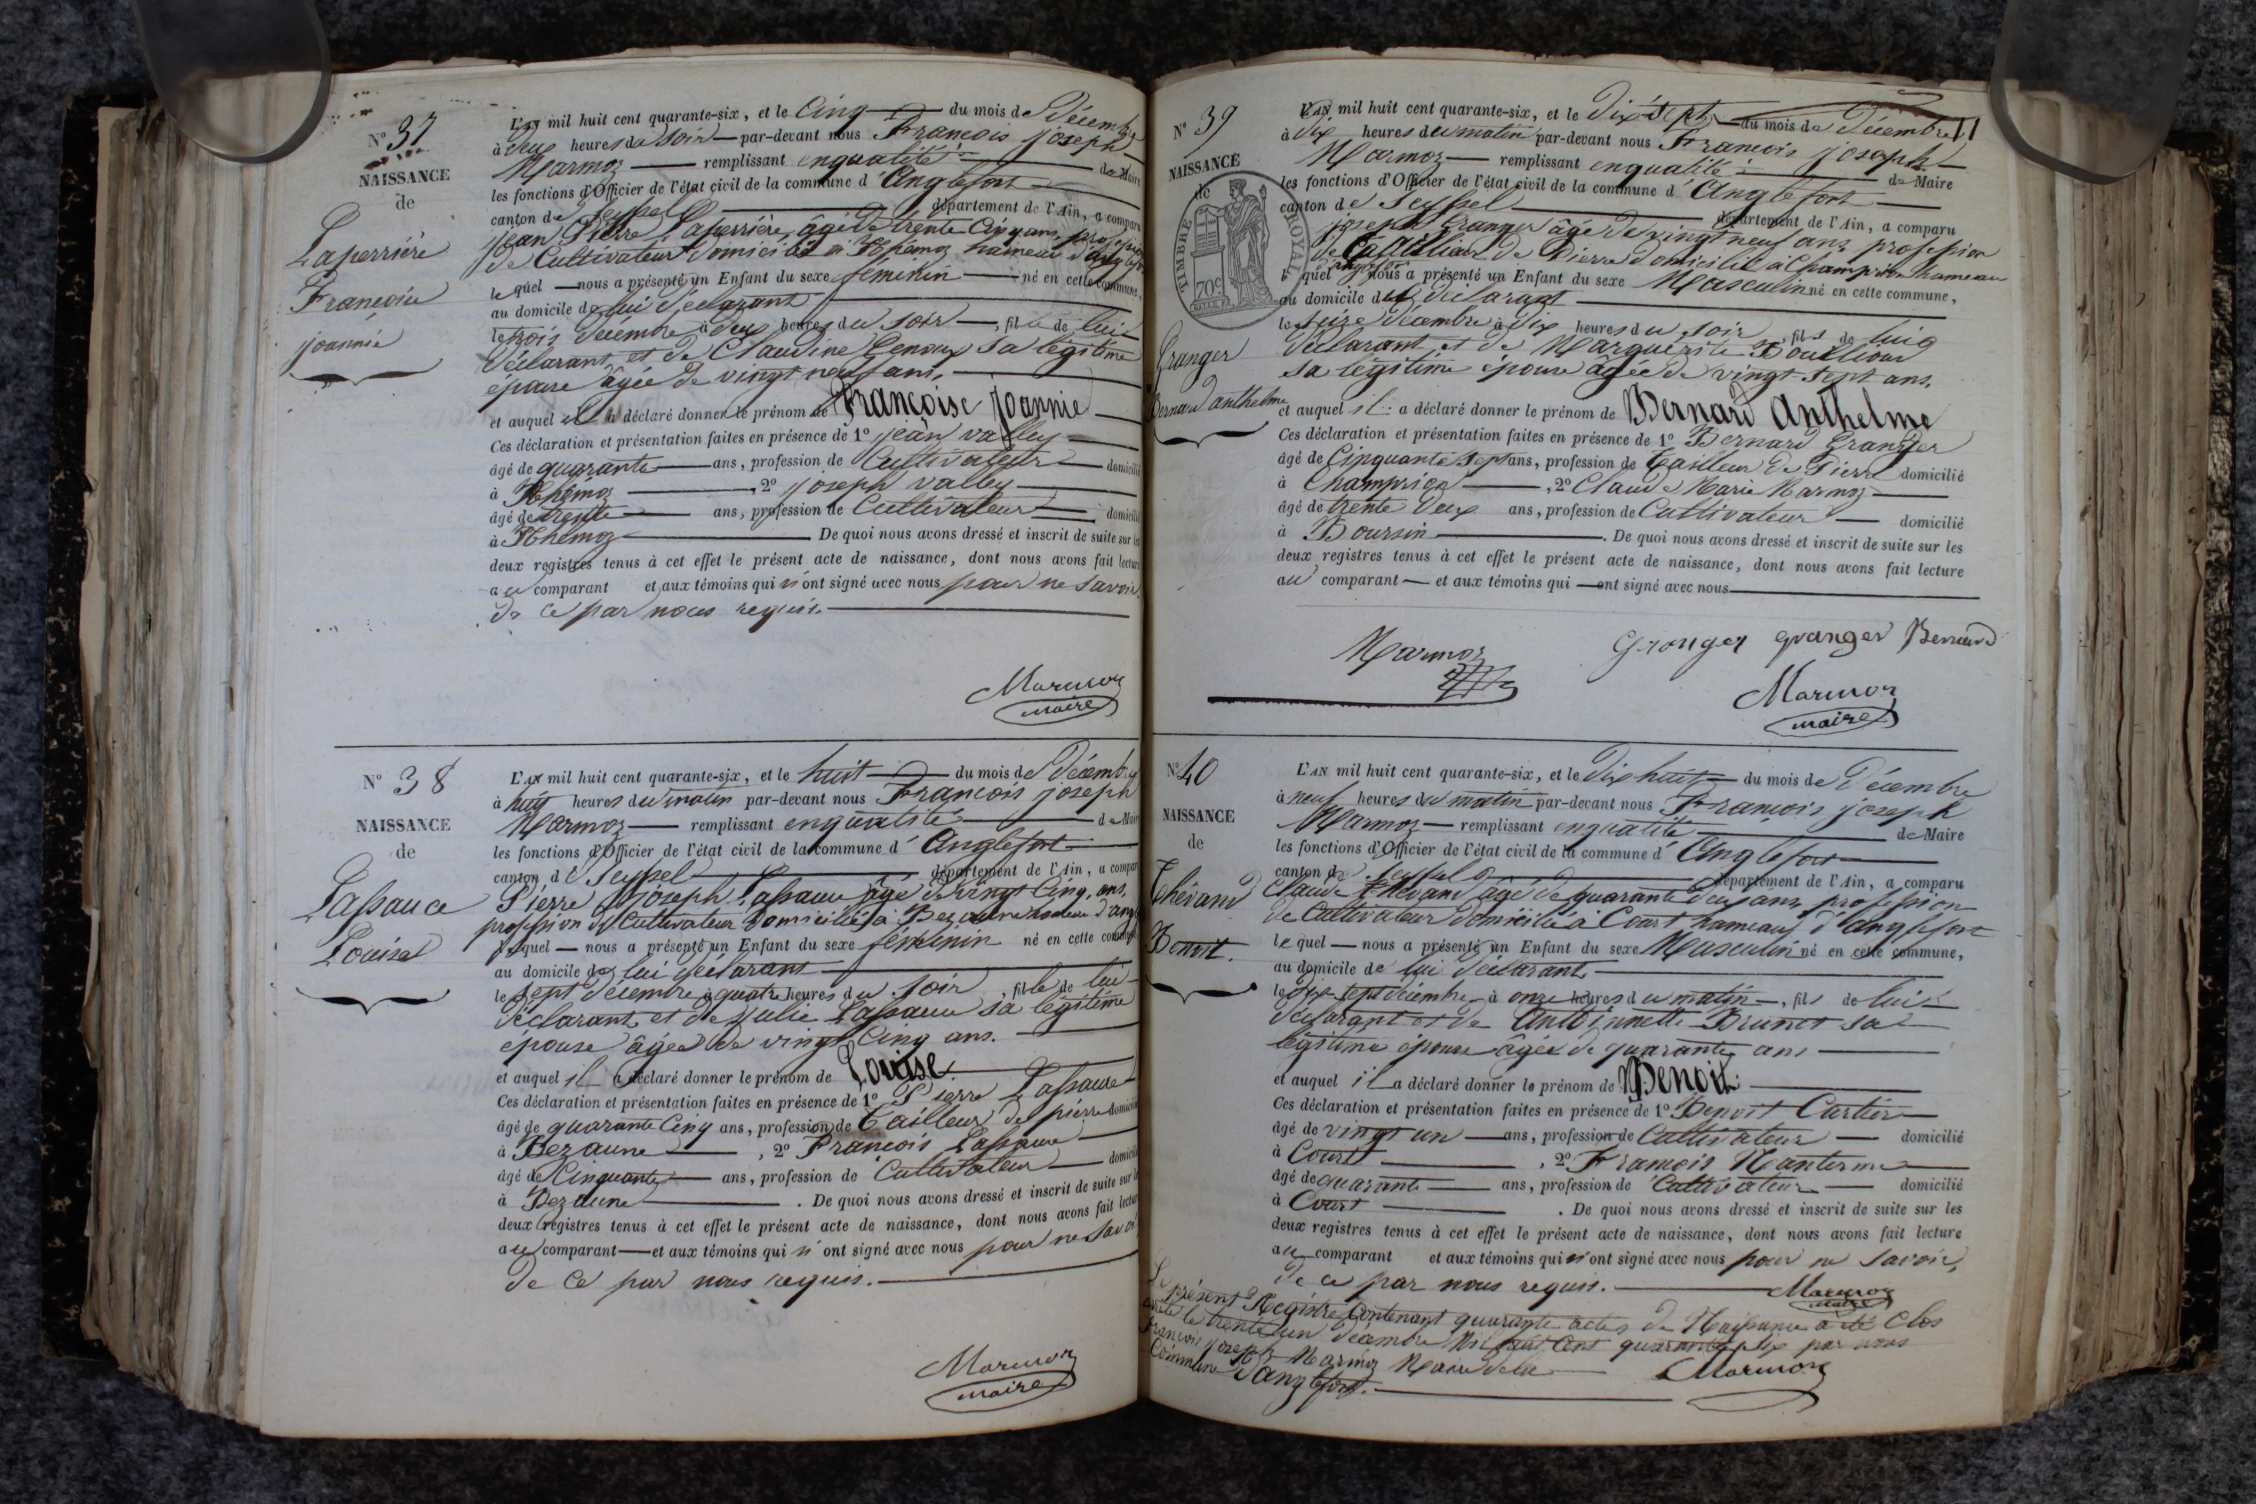 N° 37
NAISSANCE
de
Laperrière
Françoise
joannie
L'AN mil huit cent quarante-six, et le Cinq du mois de Décembre
à deux heures du soir par-devant nous François joseph
Marmoz remplissant en qualité de Maire
les fonctions d'Officier de l'état civil de la commune d'Anglefort
canton de Seyssel département de l'Ain, a comparu
jean Pierre Laperrière, âgé de trente Cinq ans, profession
de Cultivateur domicilié à Rhémoz hameau d'anglefort
lequel nous a présenté un Enfant du sexe féminin né en cette commune,
au domicile de lui déclarant
le trois décembre à deux heures du soir, fille de lui
Déclarant et de Claudine Genoux sa légitime
épouse âgée de vingt neuf ans,
et auquel il a déclaré donner le prénom de Françoise joannie
Ces déclaration et présentation faites en présence de 1° jean valley
âgé de quarante ans, profession de Cultivateur domicilié
à Rhémoz, 2° joseph valley
âgé de trente ans, profession de Cultivateur domicilié
à Rhémoz De quoi nous avons dressé et inscrit de suite sur les
deux registres tenus à cet effet le présent acte de naissance, dont nous avons fait lecture
au comparant et aux témoins qui n'ont signé avec nous pour ne savoir
de ce par nous requis.
Marmoz
maire
N° 38
NAISSANCE
de
Lassauce
Louise
L'AN mil huit cent quarante-six, et le huit du mois de Décembre
à huit heures du matin par-devant nous François joseph
Marmoz remplissant en qualité de Maire
les fonctions d'Officier de l'état civil de la commune d'Anglefort
canton de Seyssel département de l'Ain, a comparu
Pierre joseph Lassauce âgé de vingt Cinq ans,
profession de Cultivateur domicilié à Bezaune hameau d'anglefort
lequel nous a présenté un Enfant du sexe féminin né en cette commune
au domicile de lui déclarant
le sept décembre à quatre heures du soir, fille de lui
Déclarant et de julie Lassauce sa légitime
épouse âgée de vingt Cinq ans.
et auquel il a déclaré donner le prénom de Louise.
Ces déclaration et présentation faites en présence de 1° Pierre Lassauce
âgé de quarante Cinq ans, profession de Tailleur de pierre domicilié
à Bezaune, 2° François Lassauce
âgé de Cinquante ans, profession de Cultivateur domicilié
à Bezaune. De quoi nous avons dressé et inscrit de suite sur les
deux registres tenus à cet effet le présent acte de naissance, dont nous avons fait lecture
au comparant et aux témoins qui n'ont signé avec nous pour ne savoir
de ce par nous requis.
Marmoz
maire
N° 39
NAISSANCE
de
TIMBRE ROYAL
70c
Granger
Bernard anthelme
L'AN mil huit cent quarante-six, et le Dix Sept du mois de Décembre
à dix heures du matin par-devant nous François joseph
Marmoz remplissant en qualité de Maire
les fonctions d'Officier de l'état civil de la commune d'Anglefort
canton de Seyssel département de l'Ain, a comparu
joseph Granger âgé de vingt neuf ans profession
de Tailleur de Pierre domicilié à Champrion hameau
d'anglefort
lequel nous a présenté un Enfant du sexe Masculin né en cette commune,
au domicile du déclarant
le Seize décembre à dix heures du soir, fils de lui
déclarant et de Marguerite
sa légitime épouse âgée de vingt sept ans.
et auquel il a déclaré donner le prénom de Bernard Anthelme
Ces déclaration et présentation faites en présence de 1° Bernard Granger
âgé de Cinquante sept ans, profession de Tailleur de Pierre domicilié
à Champrion, 2° Claude Marie Marmoz
âgé de trente deux ans, profession de Cultivateur domicilié
à Boursin. De quoi nous avons dressé et inscrit de suite sur les
deux registres tenus à cet effet le présent acte de naissance, dont nous avons fait lecture
au comparant et aux témoins qui ont signé avec nous
Marmoz Granger granger Bernard
Marmoz
maire
N° 40
NAISSANCE
de
Thévand
Benoit.
L'AN mil huit cent quarante-six, et le Dix huit du mois de Décembre
à neuf heures du matin par-devant nous François joseph
Marmoz remplissant en qualité de Maire
les fonctions d'Officier de l'état civil de la commune d'Anglefort
canton de Seyssel département de l'Ain, a comparu
Claude Thévand âgé de quarante deux ans profession
de Cultivateur domicilié à Court hameau d'anglefort
lequel nous a présenté un Enfant du sexe Masculin né en cette commune,
au domicile de lui déclarant
le dix sept décembre à onze heures du matin, fils de lui
déclarant et de Antoinette Brunet sa
légitime épouse âgée de quarante ans
et auquel il a déclaré donner le prénom de Benoit
Ces déclaration et présentation faites en présence de 1° Benoit Cartier
âgé de vingt un ans, profession de Cultivateur domicilié
à Court, 2° François Nanterme
âgé de quarante ans, profession de Cultivateur domicilié
à Court. De quoi nous avons dressé et inscrit de suite sur les
deux registres tenus à cet effet le présent acte de naissance, dont nous avons fait lecture
au comparant et aux témoins qui n'ont signé avec nous pour ne savoir,
de ce par nous requis.
Marmoz
maire
Le présent Registre Contenant quarante actes de Naissance a été clos
arrêté le trente un Décembre Mil huit Cent quarante Six par nous
François joseph Marmoz Maire de la
Commune d'anglefort.
Marmoz